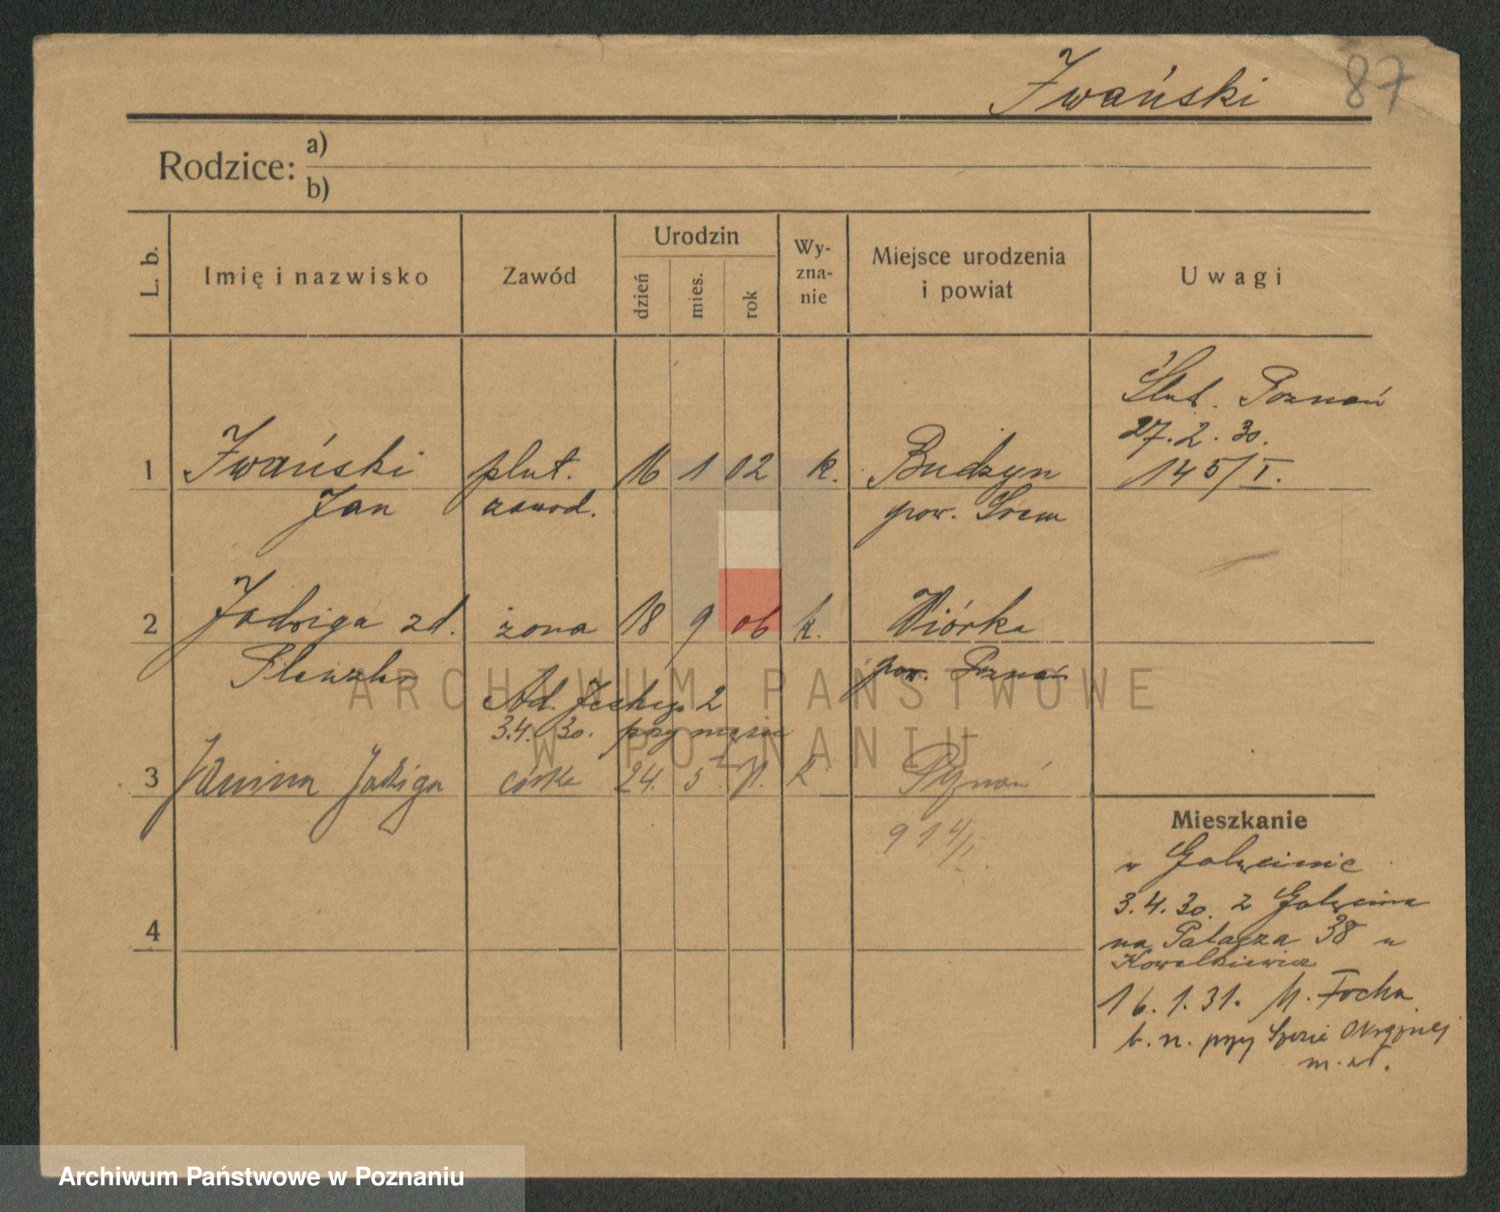 Iwański 87
Rodzice: a)
b)
L. b. Imię i nazwisko Zawód Urodzin dzień mies. rok Wyznanie Miejsce urodzenia i powiat Uwagi
Ślub. Poznań
27.2.30.
145/I.
1 Iwański plut. 16 1 02 k. Budzyn
Jan zawod. pow. Śrem
2 Jadwiga zd. żona 18 9 06 k. Wiórka
pow. Poznań
Ad. 2
3.4.30. przy mężu
3 Janina Jadwiga córka 24. 5 k Poznań
914/I
4
Mieszkanie
w Golęcinie
3.4.30. z Golęcina
na Palacza 38 u
Kowalkiewicz
16.1.31. M. Focha
b. n. przy Okrężnej
ARCHIWUM PAŃSTWOWE
W POZNANIU
Archiwum Państwowe w Poznaniu